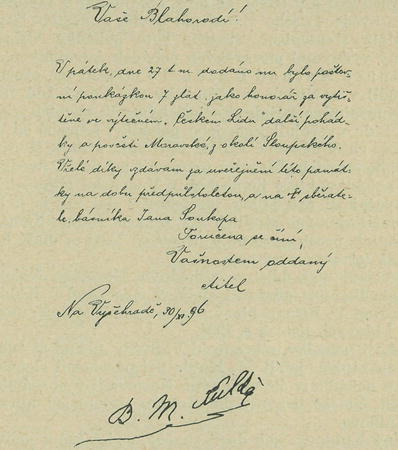 Vaše Blahorodí!
V pátek, dne 27 t.m. dodáno mi bylo poštov-
ní poukázkou 7 zlat. jako honorář za vytiš-
těné ve výtečném „Českém Lidu" další pohád-
ky a pověsti Moravské, z okolí Sloupského.
Vřelé díky vzdávám za uveřejnění této památ-
ky na dobu předpůlstoletou, a na † sběrate-
le, básníka Jana Soukopa
Poručena se činí,
Vašnostem oddaný
ctitel
Na Vyšehradě, 30/XI. 96
B. M. Kulda